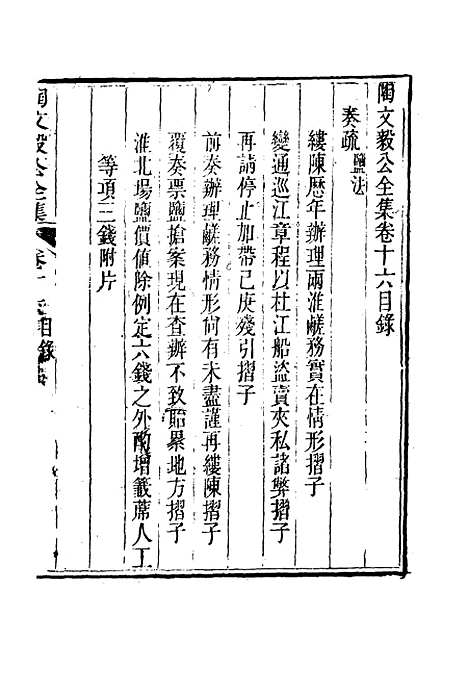 陶文毅公全集卷十六目錄
奏疏 鹽法
縷陳歷年辦理兩淮鹺務實在情形摺子
變通巡江章程以杜江船盜賣夾私諸弊摺子
再請停止加帶己庚殘引摺子
前奏辦理鹺務情形尚有未盡謹再縷陳摺子
覆奏票鹽搶案現在查辦不致貽累地方摺子
淮北場鹽價值除例定六錢之外酌增籤蓆人工
等項三錢附片
陶文毅公全集 卷十六目錄